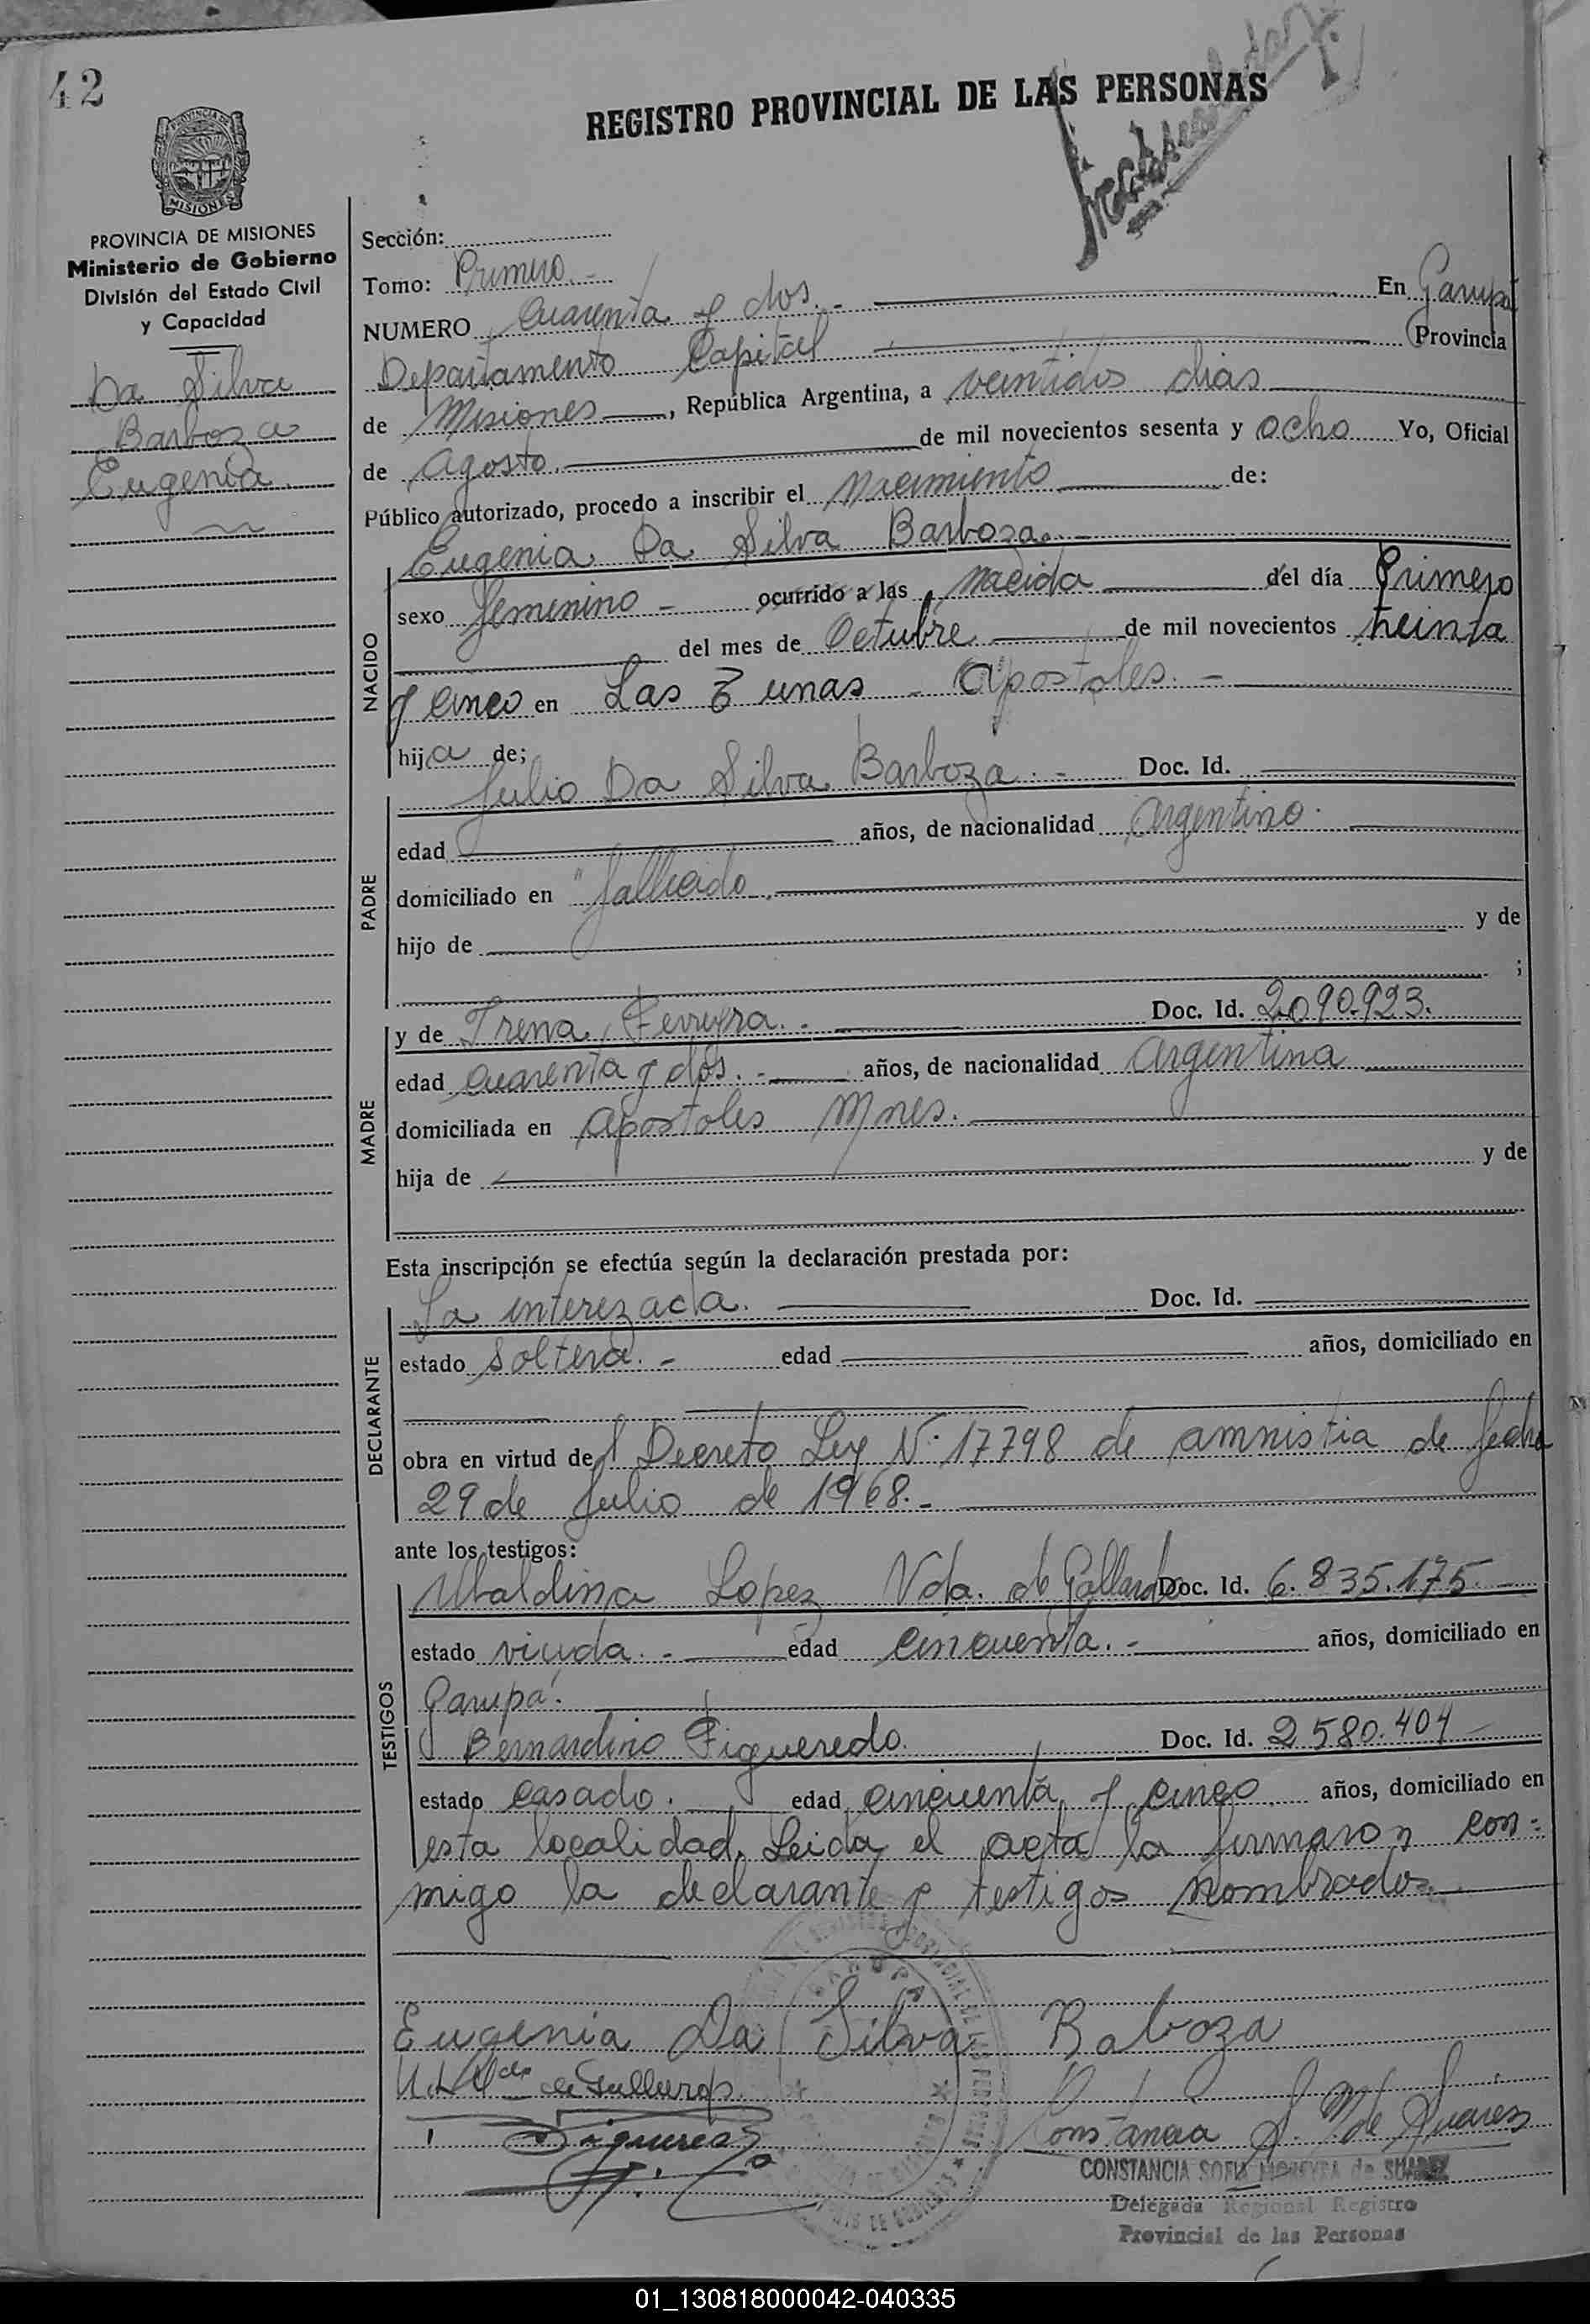 42
REGISTRO PROVINCIAL DE LAS PERSONAS
PROVINCIA DE MISIONES
MISIONES
PROVINCIA DE MISIONES
Ministerio de Gobierno
División del Estado Civil
y Capacidad
Da Silva
Barboza
Eugenia.
Sección:
Tomo: Primero.-
NUMERO Cuarenta y dos.- En Garupá
Departamento Capital Provincia
de Misiones, República Argentina, a veintidos dias
de agosto. de mil novecientos sesenta y ocho Yo, Oficial
Público autorizado, procedo a inscribir el nacimiento de:
NACIDO
Eugenia Da Silva Barboza.-
sexo femenino - ocurrido a las nacida del día Primero
del mes de Octubre de mil novecientos treinta
y cinco en Las Tunas - Apostoles.-
hija de;
PADRE
Julio Da Silva Barboza.- Doc. Id.
edad años, de nacionalidad argentino.
domiciliado en "fallecido.
hijo de y de
;
MADRE
y de Irena Ferreyra.- Doc. Id. 2.090.923.
edad cuarenta y dos.- años, de nacionalidad argentina
domiciliada en apostoles Mnes.
hija de y de
Esta inscripción se efectúa según la declaración prestada por:
DECLARANTE
La interezada. Doc. Id.
estado soltera.- edad años, domiciliado en
obra en virtud del Decreto Ley N° 17798 de amnistia de fecha
29 de Julio de 1968.-
ante los testigos:
TESTIGOS
Ubaldina Lopez Vda. de Gallardo Doc. Id. 6.835.175.-
estado viuda.- edad cincuenta.- años, domiciliado en
Garupá.
Bernardino Figueredo. Doc. Id. 2580.404-
estado casado. edad cincuenta y cinco años, domiciliado en
esta localidad. Leida el acta la firmaron con-
migo la declarante y testigos nombrados
Eugenia Da Silva Baboza
Constancia S. M. de Suarez
CONSTANCIA SOFIA MOREYRA de SUAREZ
Delegada Regional Registro
Provincial de las Personas
01_130818000042-040335